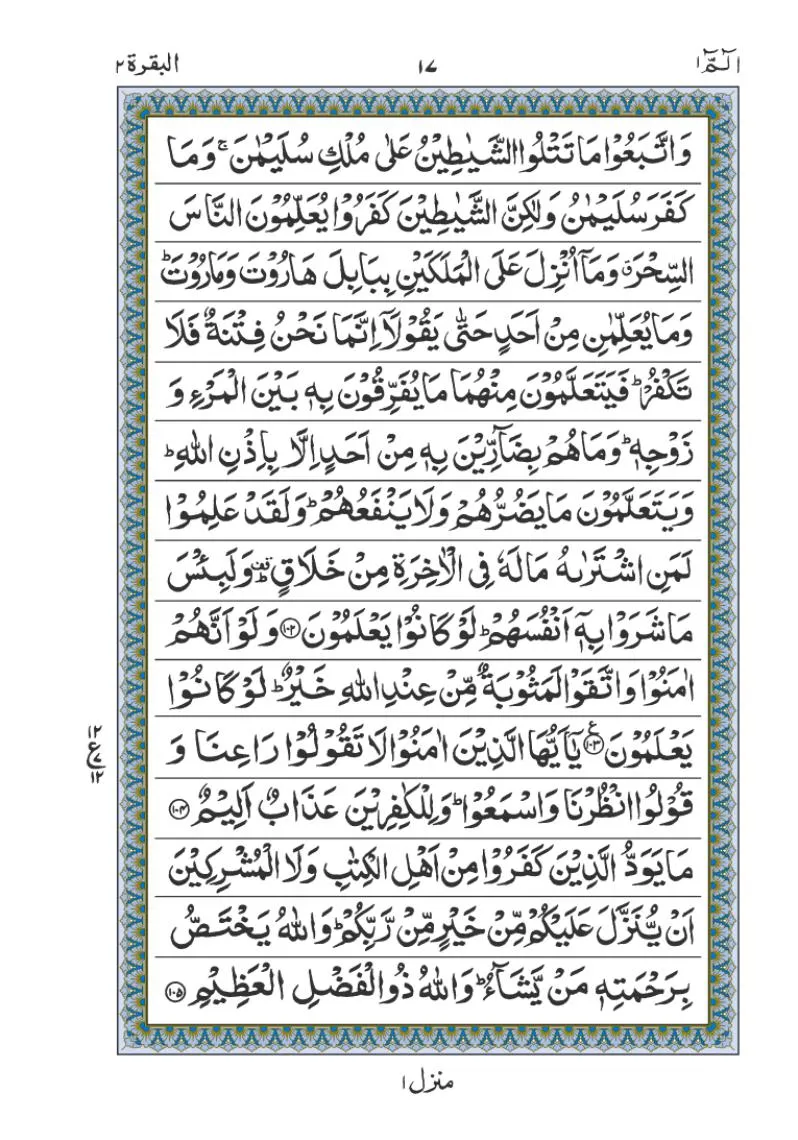 الٓمّٓ ۱
۱۷
البقرة ۲
وَاتَّبَعُوۡا مَا تَتۡلُوا الشَّيٰطِيۡنُ عَلٰى مُلۡكِ سُلَيۡمٰنَ ‌ۚ وَمَا
كَفَرَ سُلَيۡمٰنُ وَلٰـكِنَّ الشَّيٰطِيۡنَ كَفَرُوۡا يُعَلِّمُوۡنَ النَّاسَ
السِّحۡرَ ۙ وَمَآ اُنۡزِلَ عَلَى الۡمَلَـکَيۡنِ بِبَابِلَ هَارُوۡتَ وَمَارُوۡتَ‌ؕ
وَمَا يُعَلِّمٰنِ مِنۡ اَحَدٍ حَتّٰى يَقُوۡلَاۤ اِنَّمَا نَحۡنُ فِتۡنَةٌ فَلَا
تَكۡفُرۡ‌ؕ فَيَتَعَلَّمُوۡنَ مِنۡهُمَا مَا يُفَرِّقُوۡنَ بِهٖ بَيۡنَ الۡمَرۡءِ وَ
زَوۡجِهٖ‌ؕ وَمَا هُمۡ بِضَآرِّيۡنَ بِهٖ مِنۡ اَحَدٍ اِلَّا بِاِذۡنِ اللّٰهِ‌ؕ
وَيَتَعَلَّمُوۡنَ مَا يَضُرُّهُمۡ وَلَا يَنۡفَعُهُمۡ‌ؕ وَلَقَدۡ عَلِمُوۡا
لَمَنِ اشۡتَرٰٮهُ مَا لَهٗ فِى الۡاٰخِرَةِ مِنۡ خَلَاقٍ‌ؕ وَلَبِئۡسَ
مَا شَرَوۡا بِهٖۤ اَنۡفُسَهُمۡ‌ؕ لَوۡ کَانُوۡا يَعۡلَمُوۡنَ ﴿۱۰۲﴾ وَلَوۡ اَنَّهُمۡ
اٰمَنُوۡا وَاتَّقَوۡا لَمَثُوۡبَةٌ مِّنۡ عِنۡدِ اللّٰهِ خَيۡرٌ‌ؕ لَوۡ كَانُوۡا
يَعۡلَمُوۡنَ ﴿۱۰۳﴾ ع يٰٓاَيُّهَا الَّذِيۡنَ اٰمَنُوۡا لَا تَقُوۡلُوۡا رَاعِنَا وَ
۱۲
ع
۱۲
قُوۡلُوا انۡظُرۡنَا وَاسۡمَعُوۡا‌ؕ وَلِلۡكٰفِرِيۡنَ عَذَابٌ اَلِيۡمٌ ﴿۱۰۴﴾
مَا يَوَدُّ الَّذِيۡنَ كَفَرُوۡا مِنۡ اَهۡلِ الۡكِتٰبِ وَلَا الۡمُشۡرِكِيۡنَ
اَنۡ يُّنَزَّلَ عَلَيۡڪُمۡ مِّنۡ خَيۡرٍ مِّنۡ رَّبِّکُمۡ‌ؕ وَاللّٰهُ يَخۡتَصُّ
بِرَحۡمَتِهٖ مَنۡ يَّشَآءُ ‌ؕ وَاللّٰهُ ذُو الۡفَضۡلِ الۡعَظِيۡمِ ﴿۱۰۵﴾
منزل ۱